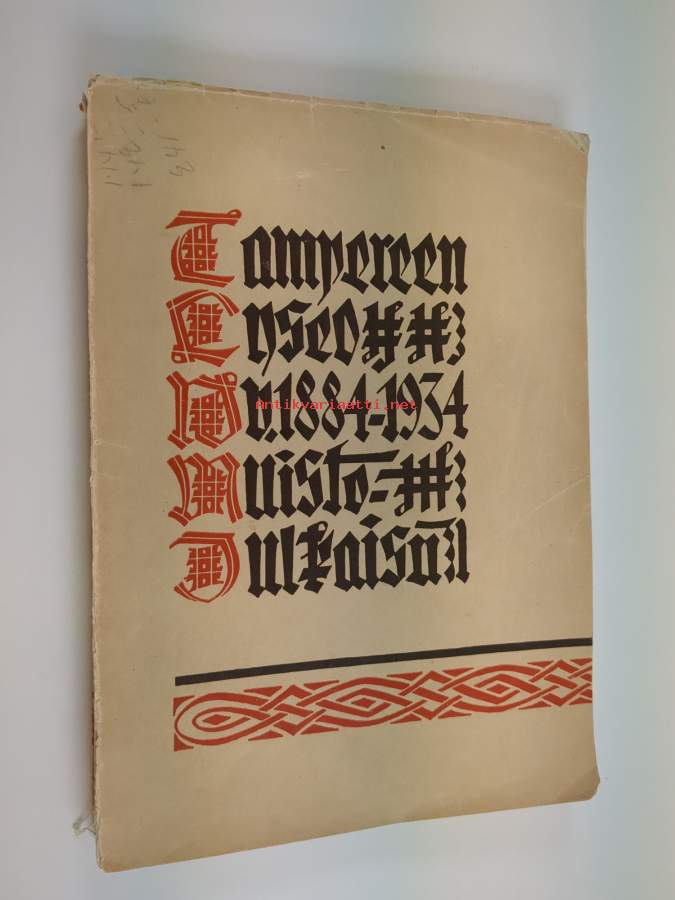 Tampereen
Lyseo
Vv.1884-1934
Muisto-
Julkaisu
Antikvariaatti.net